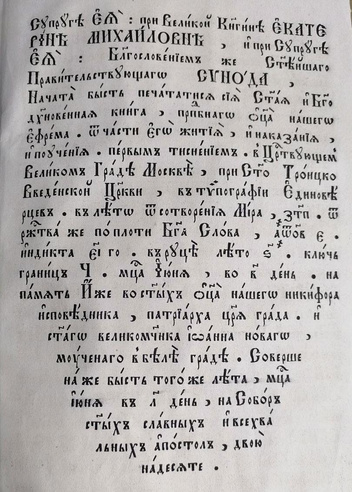 Сꙋпрꙋгѣ Є҆ѧ̀: при Вели́кой Кнѧги́нѣ Є҆КАТЕ
РИ́НѢ МИХА́ИЛОВНѢ , и҆ при Сꙋпрꙋгѣ
Є҆ѧ̀ : Бл҃гословенїемъ же Ст҃ѣ́йшаго
Прави́тельствꙋющагѡ СѴНО́ДА ,
Нача́та бы́сть печа́татисѧ сїѧ̀ Ст҃а́ѧ и҆ Бг҃о
дꙋхнове́ннаѧ кни́га , прп҃бнагѡ ѻ҆ц҃а̀ на́шегѡ
Є҆фре́ма . ѿ ча́сти є҆гѡ̀ житїѧ̀ , и҆ наказа́нїѧ ,
и҆ поꙋче́нїѧ . пе́рвымъ тисне́нїемъ . в Цр҃твꙋющемъ
Вели́комъ Гра́дѣ Москвѣ̀ , при Ст҃о Тро́ицко
Введе́нской Цр҃кви , в тѵпогра́фїи Є҆диновѣ́
рцевъ . въ лѣ́то ѿ сотворе́нїѧ Мі́ра , ҂зтп . ѿ
рж҃тва́ же по пло́ти Бг҃а Сло́ва , ҂аѿѻв є҃ .
і҆нді́кта є҃і го . врꙋцѣ̀ лѣ́то ѕ҃ . клю́чь
грани́цъ Ч . мц҃а І҆ю́нїѧ , во в҃ де́нь . на
па́мѧть И҆́же во ст҃ы́хъ ѻ҆ц҃а̀ на́шегѡ ники́фора
и҆сповѣ́дника , патрїа́рха цр҃ѧ гра́да . и҆
ст҃а́гѡ великомч҃ника і҆ѡа́нна но́вагѡ ,
мо́ученаго в бѣ́лѣ гра́дѣ . Соверше
на́ же бы́сть того́же лѣ́та , мц҃а
і҆ю́нїѧ в л҃ де́нь , на Собо́ръ
ст҃ы́хъ сла́вныхъ и҆ всехва́
льныхъ а҆по́столъ , двою
на́десѧте .